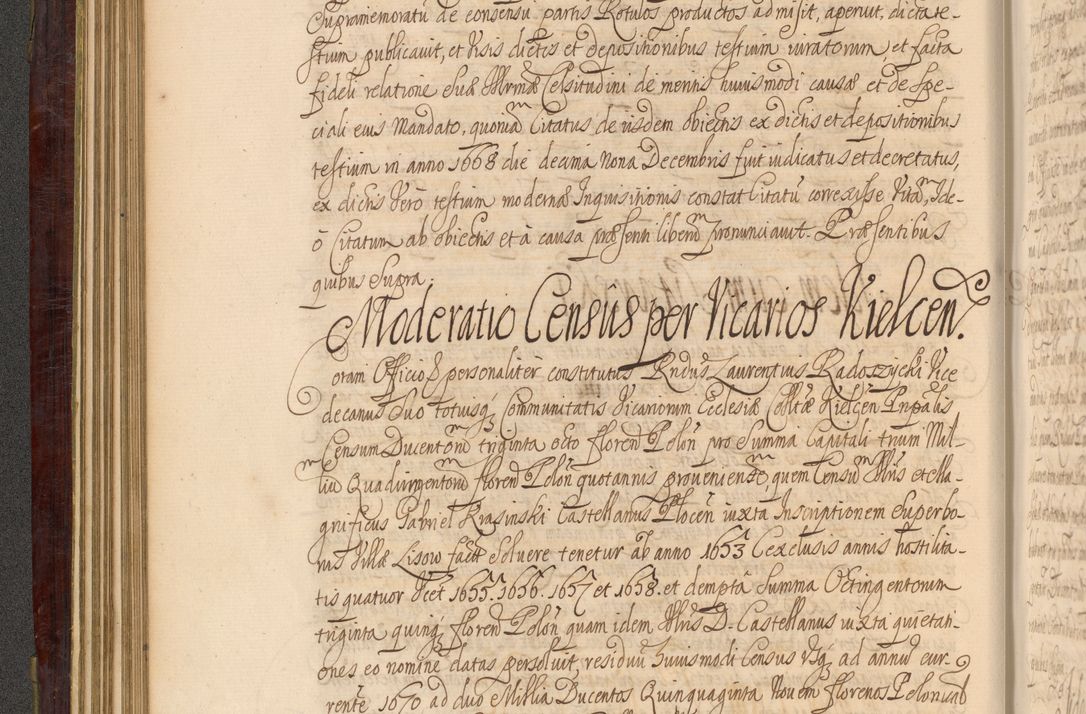 Supramemoratũ de consensu partis Rotulos productos admisit, aperuit, dicta te-
stium publicavit, et visis dictis et depositionibus testium iuratorum, et facta
fideli relatione Suæ Illrmæ Celsitudini de meritis huiusmodi causæ et de spe-
ciali eius Mandato, quoniam Citatus de iisdem obiectis ex dictis et depositionibus
testium in anno 1668 die decima nona Decembris fuit iudicatus et decretatus,
ex dictis Verò testium modernæ Inquisitionis constat Citatũ correxisse Vitam, Ide-
ò Citatum ab obiectis et à causa præsenti liberum pronunciavit. Præsentibus
quibus supra.
Moderatio Censûs per Vicarios Kielcen.
Coram Officio & personalitèr constitutus Rndus Laurentius Radoszycki Vice
decanus Suo totiusq Communitatis Vicariorum Ecclesiæ Colltæ Kielcen Prnpalis
Censum Ducentorum triginta octo floren Polon pro Summa Capitali trium Mil-
lium Quadringentorum floren Polon quotannis proveniente, quem Censum Illris et Ma-
gnificus Gabriel Krasinski Castellanus Plocen iuxta Inscriptionem Super bo-
nis Villæ Lisow factam Solvere tenetur ab anno 1653 exclusis annis hostilita-
tis quatuor Scet 1655. 1656. 1657 et 1658. et demptâ Summa Octingentorum
triginta quinq floren Polon quam idem Illris D. Castellanus iuxta quietati-
ones eo nomine datas persolvit, residuũ huiusmodi Census Usq ad annũ cur-
rentẽ 1670 ad duo Millia Ducentos Quinquaginta Novem florenos Polonical